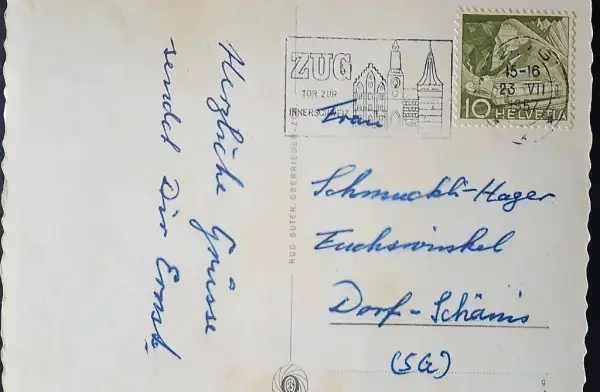 Herzliche Grüsse
sendet Dir Ernst.
ZUG
TOR ZUR
INNERSCHWEIZ
15-16
23 VII
1957
10 HELVETIA
Frau
Schmuckli-Hager
Fuchswinkel
Dorf-Schänis
(SG)
RUD. SUTER, OBERRIEDEN-Z.